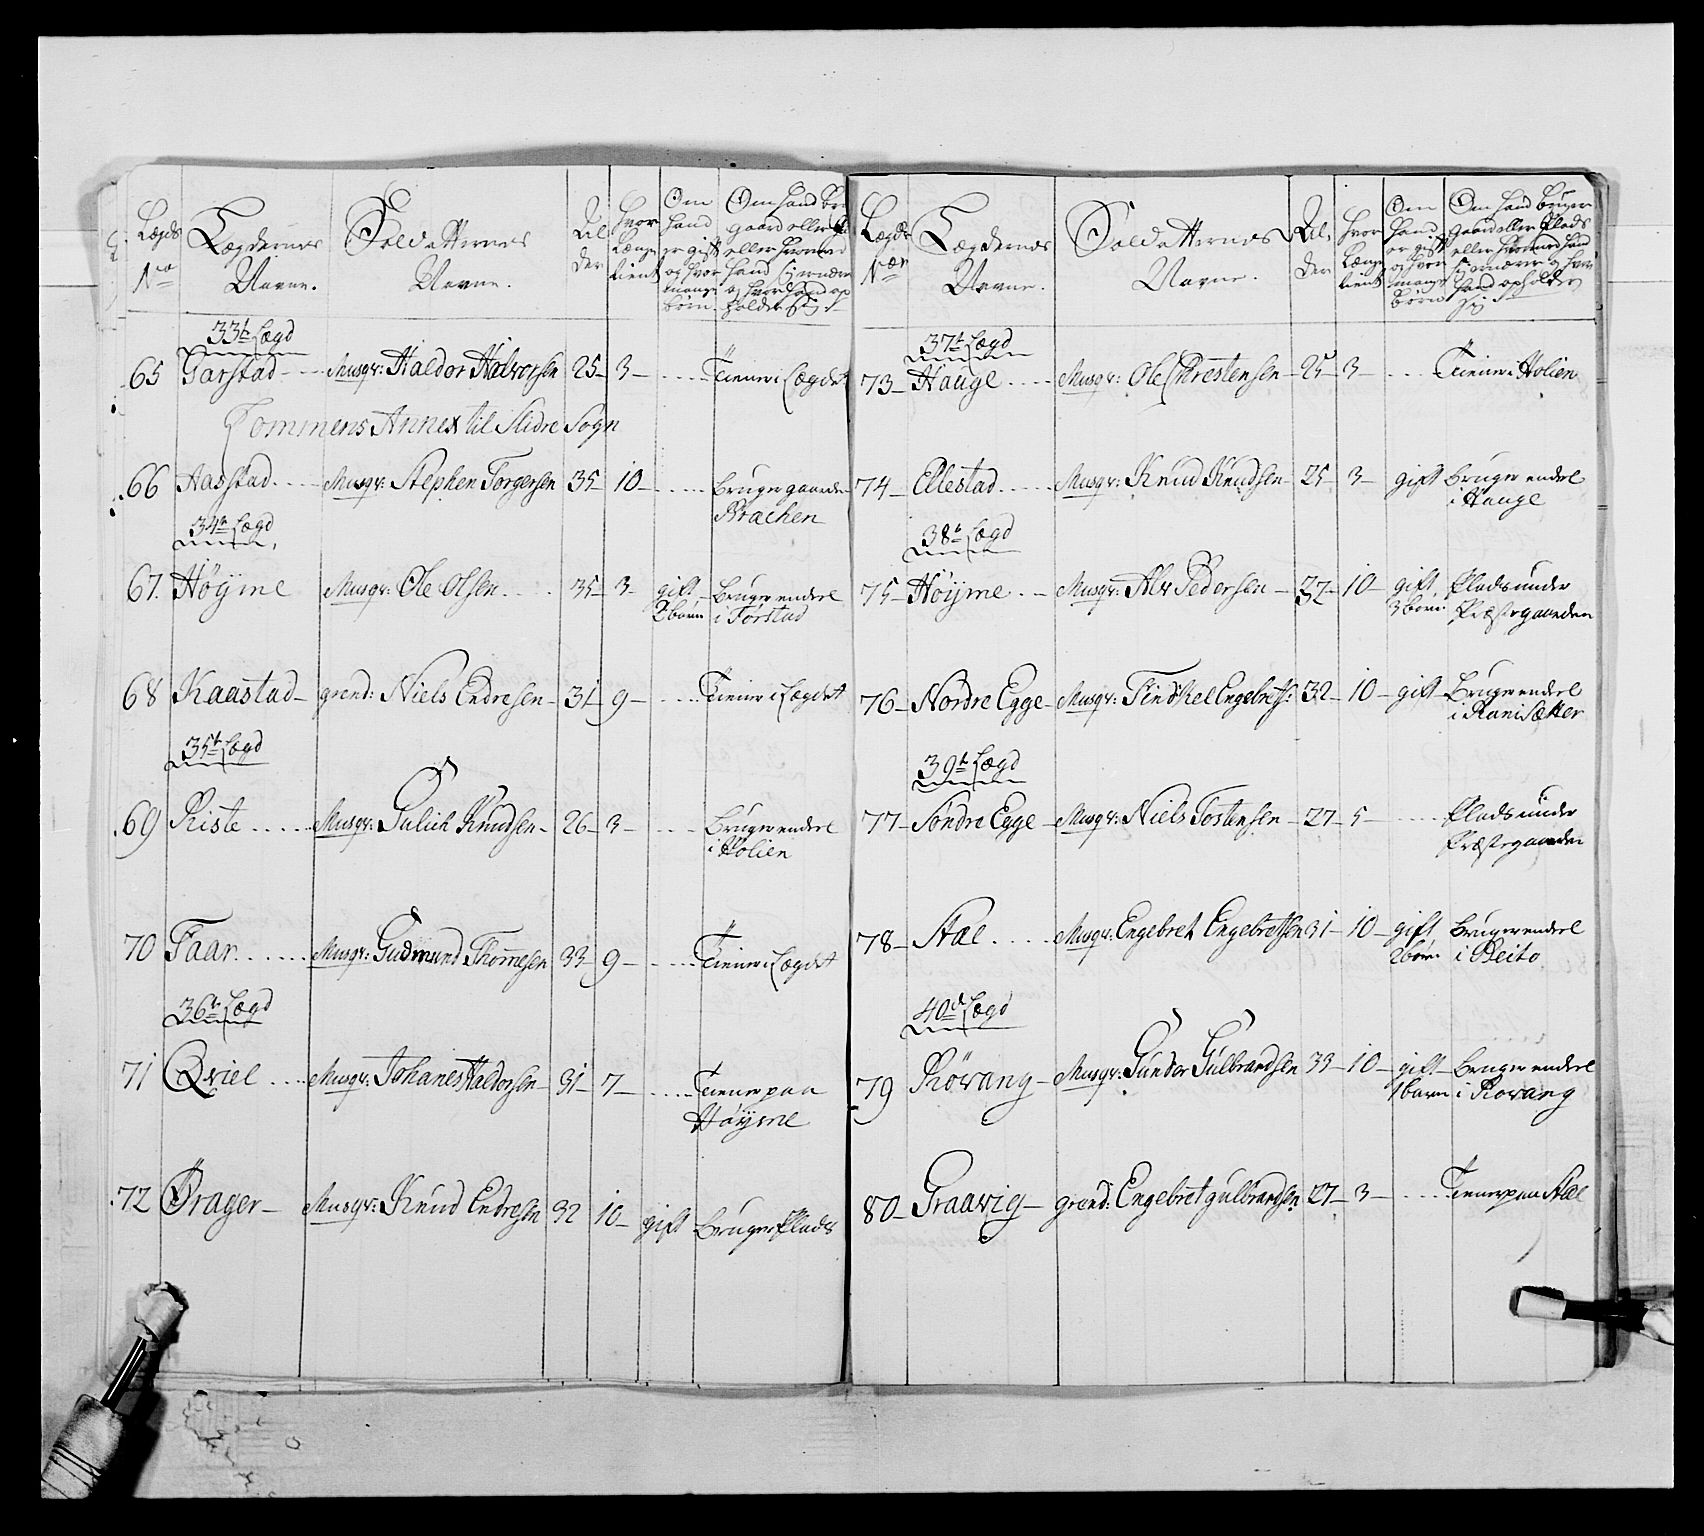 Lægds No
Lægdernes Navne.
Soldatternes Navne.
Alder
Hvor Længe tient
Om Hand er gift og hvor mange börn
Om Hand bru
gaard eller
eller hvormed
Hand sig ernære
og hvor Hand op
holder sig
33te Lægd
65 Garstad - - Musqr: Haldor Halvorsen 25 - 3 - . . . . . Tiener i Lægdet
Lommens Annex til Slidre Sogn
66 Aasstad . . . - Musqr: Stephen Torgersen 35 - 10 - . . . . . Bruger gaarden
Brachen
34te Lægd
67. Höÿme Musqr: Ole Olsen . . . . 35 - 3 - gift - Bruger endeel
2 börn i Förstad
68 Kaastad - grend: Niels Endresen - 31 - 9 - . . . . . Tiener i Lægdet
35te Lægd
69 Riste . . . . . Musqr: Gulich Knudsen - 26 - 3 - . . . . Bruger endeel
i Holien
70 Faar . . . . . Musqr: Gudmund Thomesen 33 - 9 - . . . . . Tiener i Lægdet
36te Lægd
71 Qviel . . . . Musqr: Johanes Haldorsen - 31 - 7 - . . . . . Tiener paa
Höÿme
72 Örager - Musqr: Knud Endresen 32 10 - gift - Bruger Plads
Lægds Ner
Lægdernes Navne.
Soldatternes Navne.
Alder
Hvor Længe tient
Om Hand er gift og hvor mange börn
Om Hand bruger
gaard eller Plads
eller hvormed Hand
sig ernærer og hvor
Hand opholder
sig
37te Lægd
73 - Hauge . . . . Musqr: Ole Chrestensen - 25 - 3 - . . . . Tiener i Holien
74 - Ellestad . . . . . Musqr: Knud Knudsen - 25 - 3 - gift Bruger endeel
i Hauge
38te Lægd
75 - Höÿme . . - Musqr: Alv Pedersen - 37 - 10 - gift Plads under
3 börn Præstegaarden
76 - Nordre Egge - Musqr: Findkel Engebrets: 32 - 10 - gift - Bruger endeel
i Ranisætter
39te Lægd
77 - Söndre Egge - Musqr: Niels Tostensen - 27 - 5 - . . . . . Plads under
Præstegaarden
78 - Hæl . . . . . Musqr: Engebret Engebretsen 31 - 10 - gift Bruger endeel
2 börn i Beito
40de Lægd
79 Rövang - Musqr: Gundor Gulbrandsen 33 - 10 - gift - Bruger endeel
1 barn i Rovang
80 - Graavig - grend: Engebret gulbrandsen 27 - 3 - . . . . Tiener paa Hæl